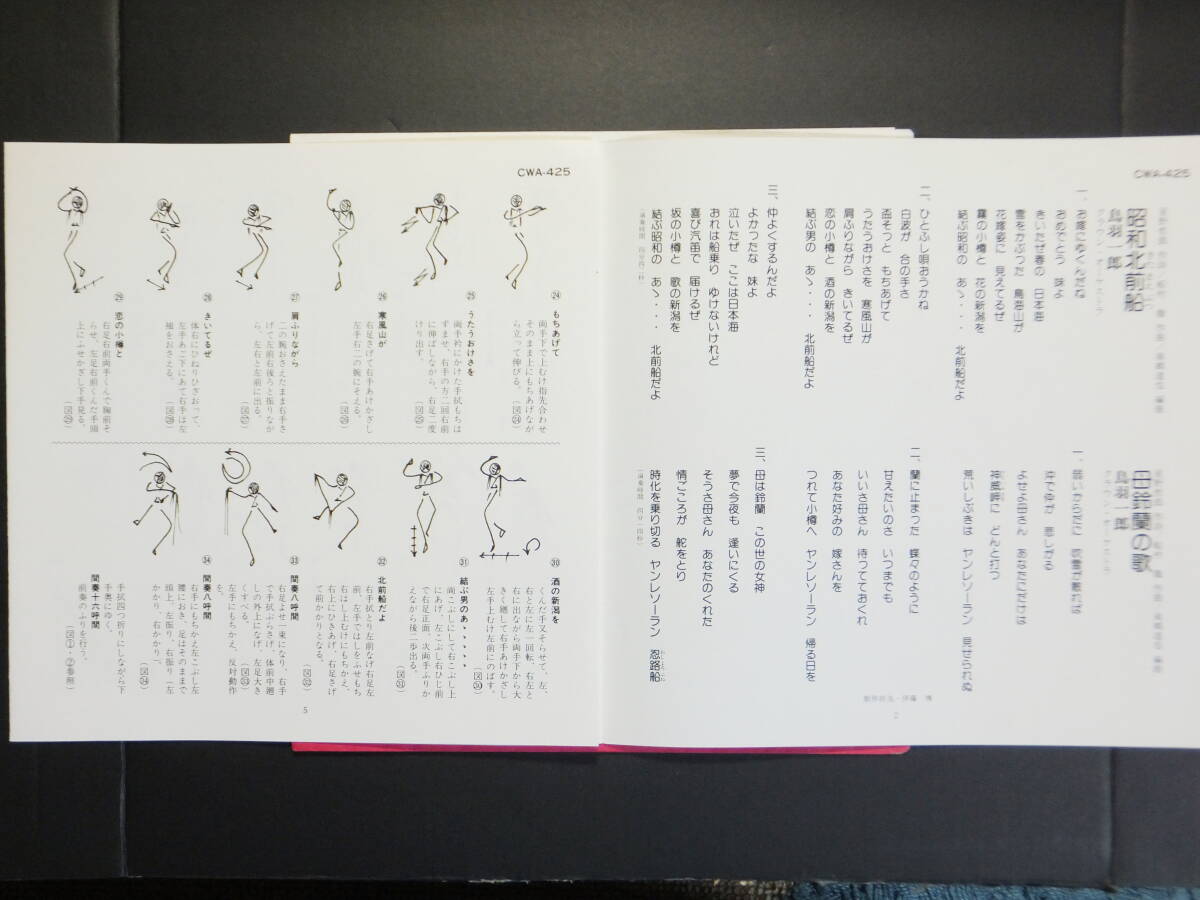 CWA-425
昭和北前船
鳥羽一郎
クラウン・オーケストラ
一、お嫁にゆくんだね
おめでとう 妹よ
きいたぜ春の 日本海
雪をかぶった 鳥海山が
花嫁姿に 見えてるぜ
霧の小樽と 花の新潟を
結ぶ昭和の あゝ・・・ 北前船だよ
二、ひとふし唄おうかね
白波が 合の手さ
盃そっと もちあげて
うたうおけさを 寒風山が
肩ふりながら きいてるぜ
恋の小樽と 酒の新潟を
結ぶ男の あゝ・・・ 北前船だよ
三、仲よくするんだよ
よかったな 妹よ
泣いたぜ ここは日本海
おれは船乗り ゆけないけれど
喜び汽笛で 届けるぜ
坂の小樽と 歌の新潟を
結ぶ昭和の あゝ・・・ 北前船だよ
母鈴蘭の歌
鳥羽一郎
クラウン・オーケストラ
一、弱いからだに 吹雪が荒れれば
沖で仲が 悲しがる
よせよ母さん あなただけは
神威岬に どんと打つ
荒いしぶきは ヤンレソーラン 見せられぬ
二、蘭に止まった 蝶々のように
甘えたいのさ いつまでも
いいさ母さん 待ってておくれ
あなた好みの 嫁さんを
つれて小樽へ ヤンレソーラン 帰る日を
三、母は鈴蘭 この世の女神
夢で今夜も 逢いにくる
そうさ母さん あなたのくれた
情ごころが 舵をとり
時化を乗り切る ヤンレソーラン 忍路船
(演奏時間 四分一四秒)
制作担当・伊藤 博
2
CWA-425
㉔ もちあげて
両手下で上むけ指先合わせ
そのまま上にもちあげなが
ら立って伸びる。
(図㉔)
㉕ うたうおけさを
両手衿にかけた手拭もちは
ずませ、右手の方二回右前
に伸ばしながら、右足二度
けり出す。
(図㉕)
㉖ 寒風山が
右足さげて右手あけかざし
左手右二の腕にそえる。
(図㉖)
㉗ 肩ふりながら
二の腕おさえたまま右手さ
げて左前右後ろと振りなが
ら、左右と左前に出る。
(図㉗)
㉘ きいてるぜ
体右にひねりひざおって、
左手あご下にあて右手は左
袖をおさえる。
(図㉘)
㉙ 恋の小樽と
右足右前両手くんで胸前そ
らせ、左足右前くんだ手頭
上にふせかざし下手見る。
(図㉙)
㉚ 酒の新潟を
くんだ手又そらせて、左、
右と左に左一回転、右左と
右に出ながら両手下から大
きく廻して右手あけかざし
左手上むけ左前にのばす。
(図㉚)
㉛ 結ぶ男のあゝゝゝゝ
両こぶしにして右こぶし上
にあげ、左こぶし右ひじ前
で右足正面、次両手ふりか
えながら後二歩出る。
(図㉛)
㉜ 北前船だよ
右手拭とり左前なげ右足左
前、左手ではしをふせもち
右はし上むけにもちかえ、
右上にひきあげ、右足さげ
て前かかりとなる。
(図㉜)
㉝ 間奏八呼間
右足よせ一束になり、右手
で手拭ぶらさげ、体前中廻
しの外上になげ、左足大き
くすべる。
(図㉝)
左手にもちかえ、反対動作
を。
㉞ 間奏八呼間
右手にもちかえ左こぶし左
腰におき、足はそのままで
頭上、左振り、右振り(左
かかり、右かかり)。
(図㉞)
間奏十六呼間
手拭四つ折りにしながら下
手奥にゆく。
前奏のふりを行う。
(図①・②参照)
5